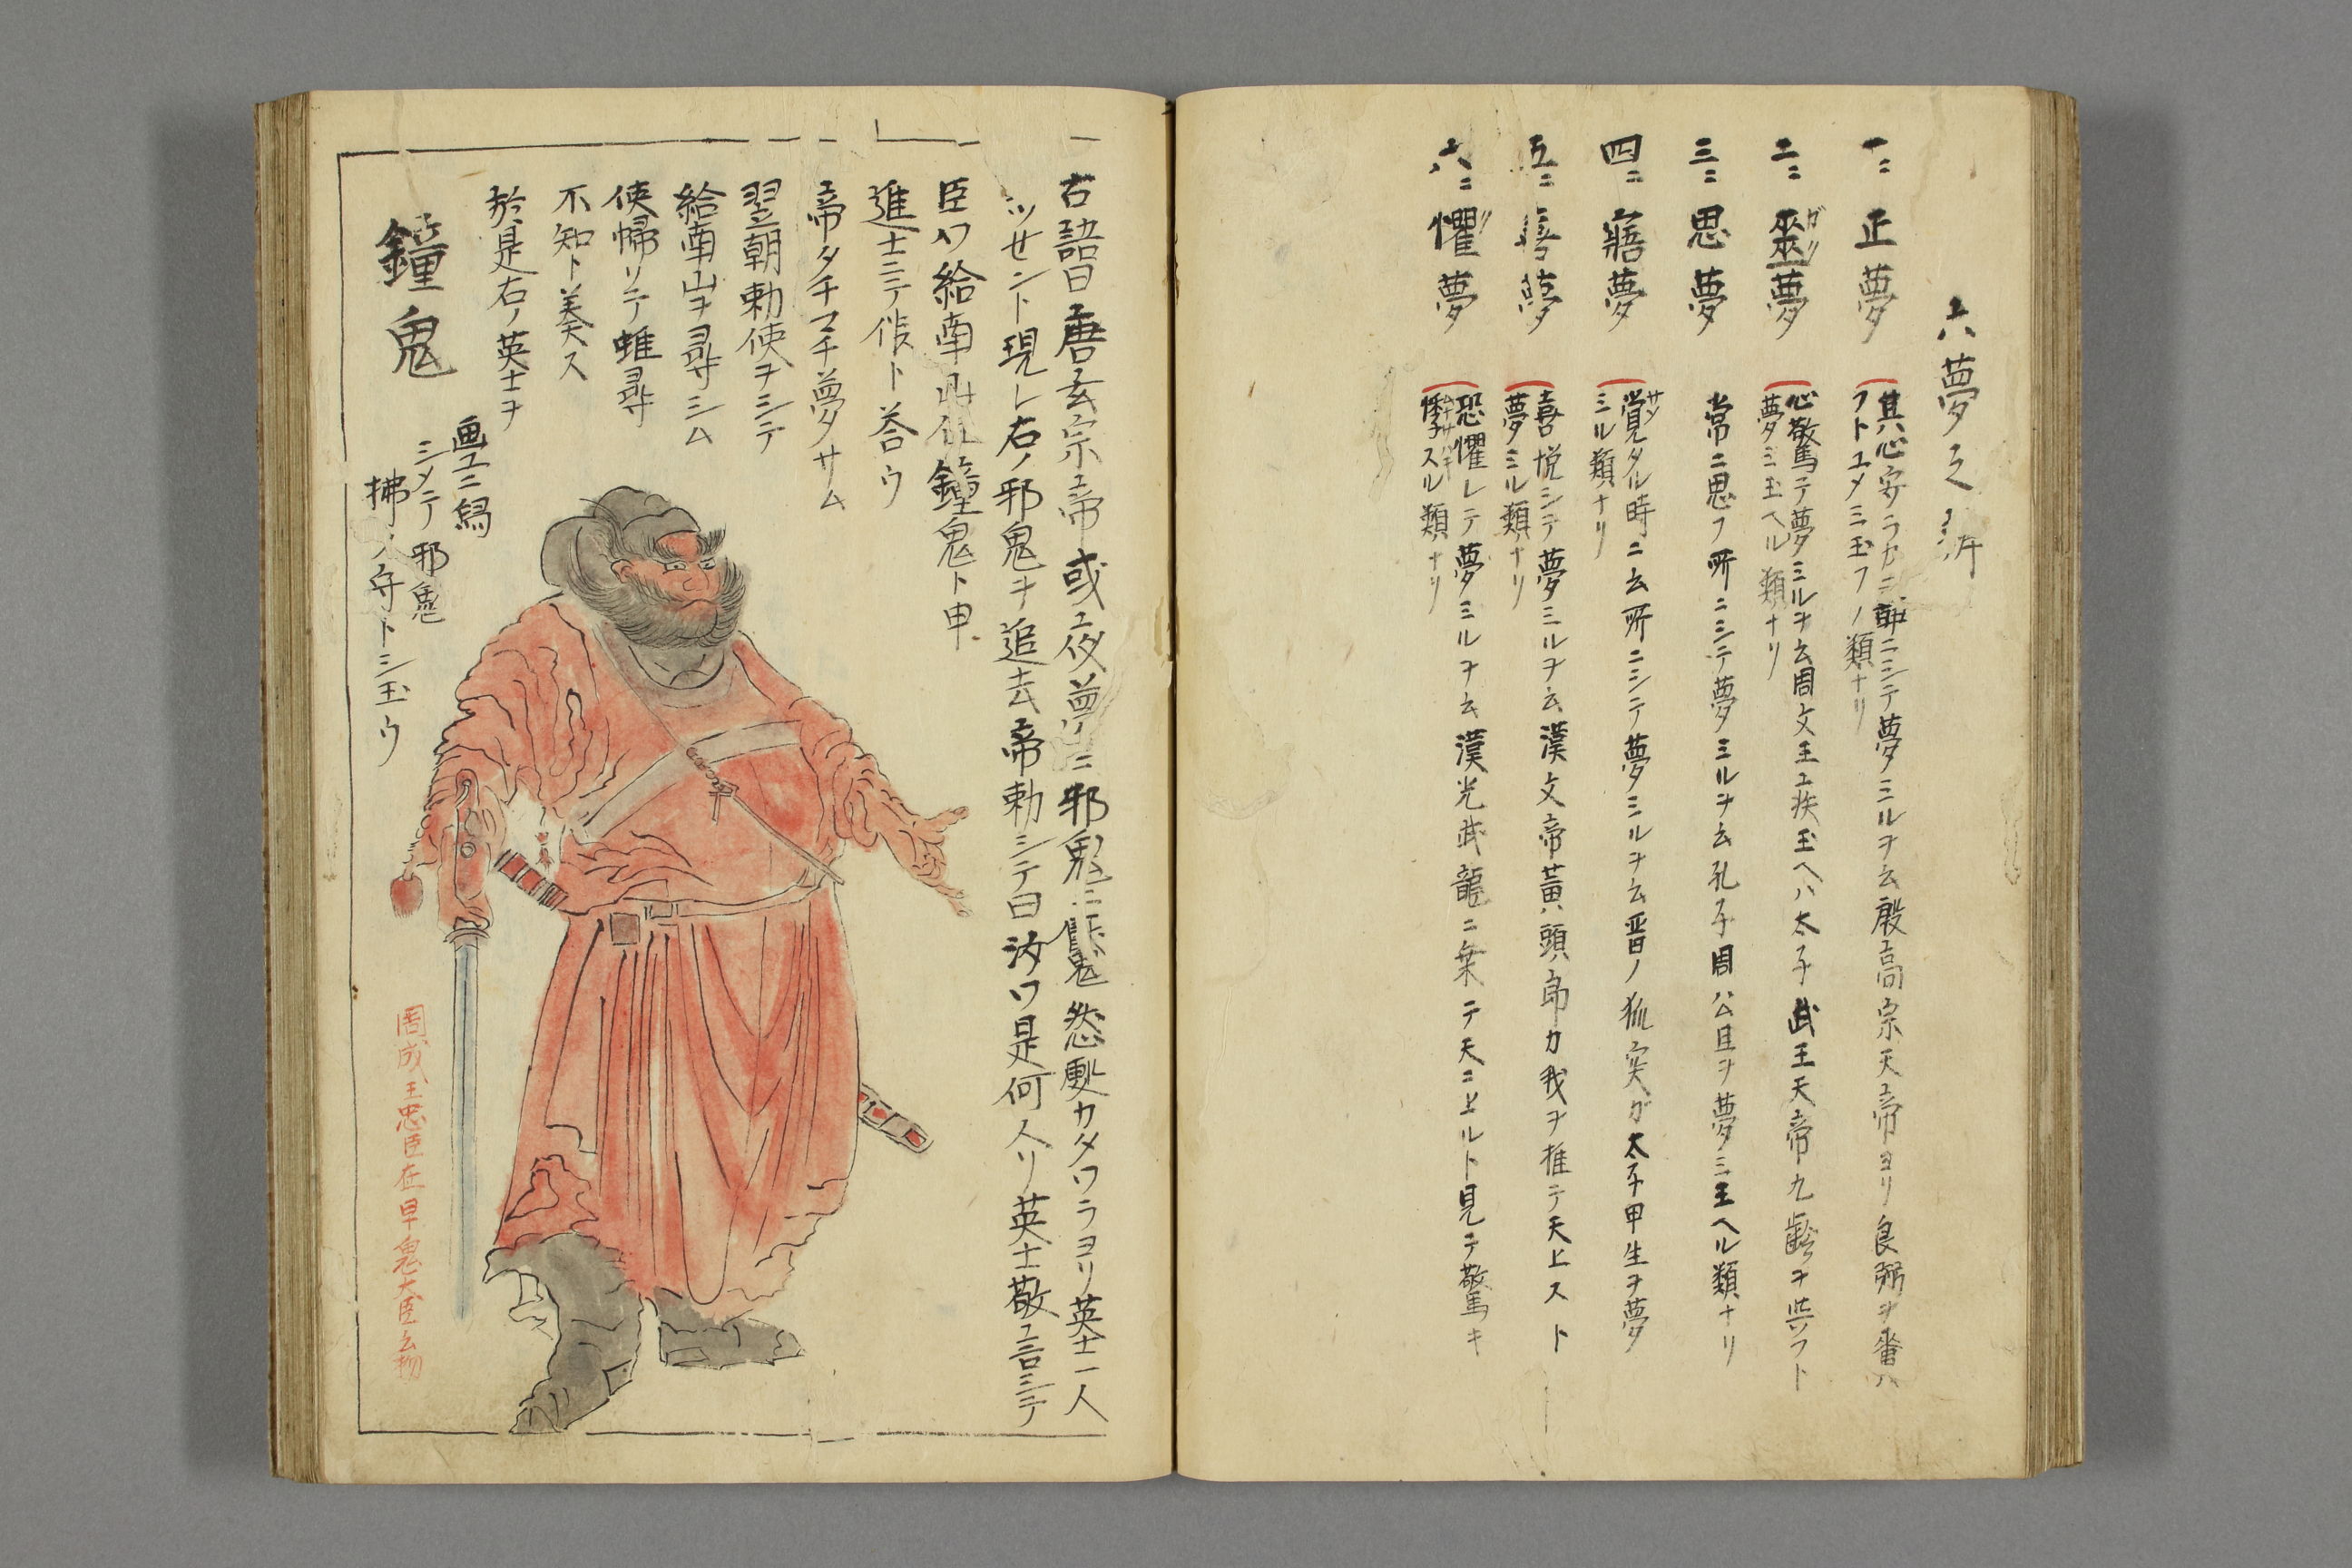 六夢之
一ニ 正夢
其心安ラカニ シテ夢ミルヲ云殷高宗天帝ヨリ良弼ヲ
フトユメミ玉フノ類ナリ
二ニ 噩夢
心驚テ夢ミルヲ云周文王 疾玉ヘハ太子武王天帝九齢ヲ フト
夢ミ玉ヘル類ナリ
三ニ 思夢
常ニ思フ所ニシテ夢ミルヲ云孔子周公旦ヲ夢ミ玉ヘル類ナリ
四ニ 寤夢
覚タル時ニ云所ニシテ夢ミルヲ云晋ノ狐突ガ太子申生ヲ夢
ミル類ナリ
五ニ 喜夢
喜悦シテ夢ミルヲ云漢文帝黄頭郎カ我ヲ推テ天上スト
夢ミル類ナリ
六ニ 懼夢
恐懼レテ夢ミルヲ云漢光武龍ニ乗テ天ニ上ルト見テ驚キ
悸スル類ナリ
右語曰唐玄宗帝或夜夢ニ邪鬼ニ 愁 カタワラヨリ英士一人
ツせント現レ右ノ邪鬼ヲ追去帝勅シテ曰汝ワ是何人リ英士敬言シテ
臣ワ給南山 鐘鬼ト申
進士ニテ ト荅ウ
帝タチマチ夢サム
翌朝勅使ヲシテ
給南山ヲ尋シム
使帰リテ雖尋
不知ト奏ス
於是右ノ英士ヲ
画工ニ写
シメテ邪鬼
拂ノ守トシ玉ウ
鐘鬼
周成王忠臣在早鬼大臣云物